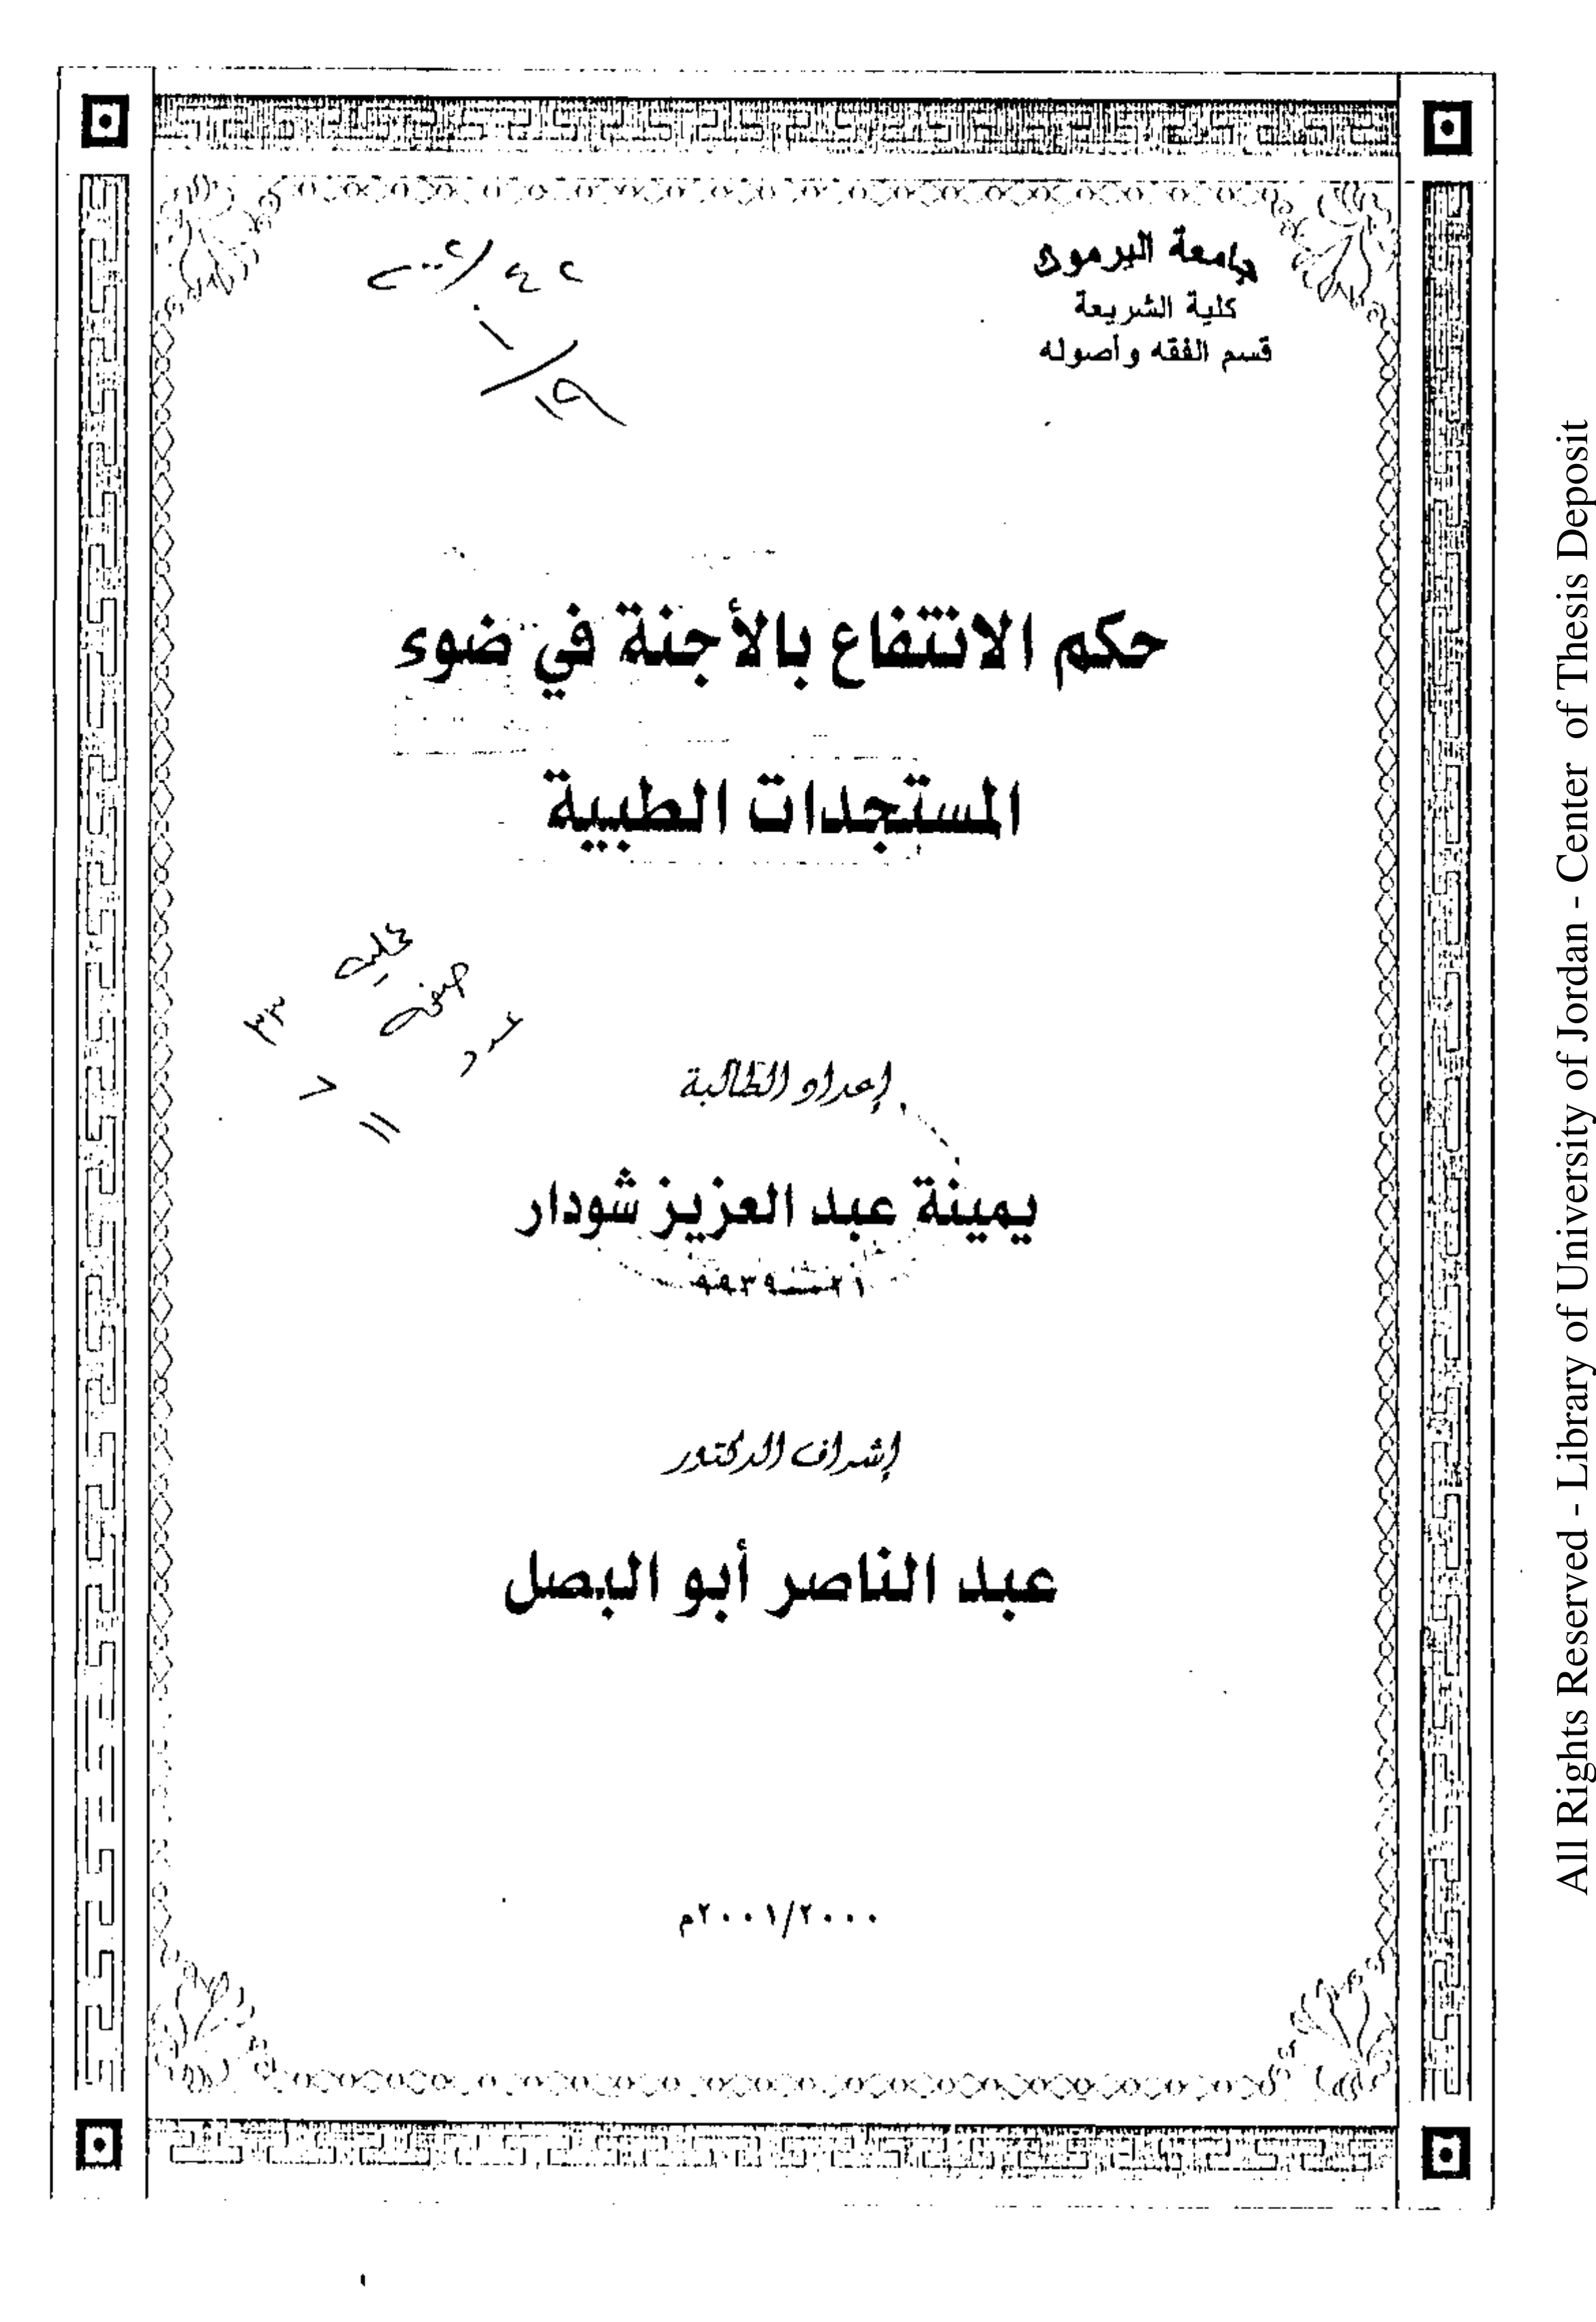 جامعة اليرموك
كلية الشريعة
قسم الفقه وأصوله
حكم الانتفاع بالأجنة في ضوء
المستجدات الطبية
إعداد الطالبة
يمينة عبد العزيز شودار
٩٩٣٩ـــ٢١
إشراف الدكتور
عبد الناصر أبو البصل
٢٠٠١/٢٠٠٠م
All Rights Reserved - Library of University of Jordan - Center of Thesis Deposit